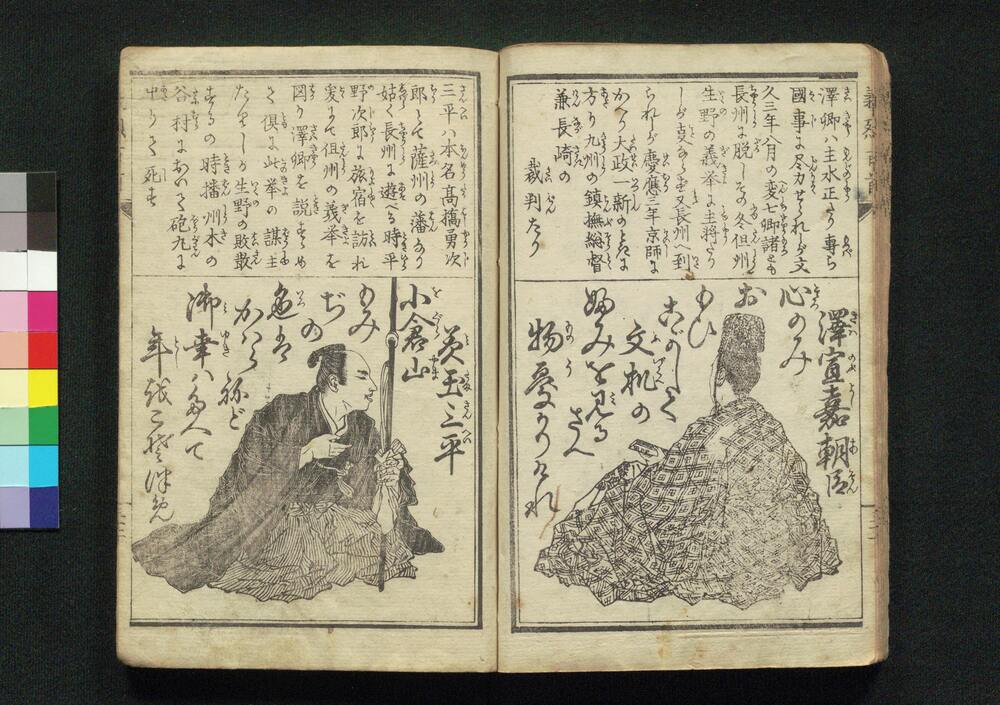 澤卿ハ主水正たり専ら
國事に尽力せられが文
久三年八月の変七卿諸とも
長州に脱しその冬但州
生野の義挙に主将たり
しが
又長州へ到
られしが慶應三年京師に
かへり大政一新のときに
方り九州の鎮撫総督
兼長崎の
裁判たり
澤宣嘉朝臣
心のみ
お
もひ
こがして
文机の
ふみを見るさへ
物憂かりけれ
三平ハ本名高橋勇次
郎とて薩州の藩なり
姑く長州に遊る時平
野次郎に旅宿を訪れ
爰にて但州の義挙を
図り澤卿を説すすめ
て倶に此挙の謀主
たりしが生野の敗散
するの時播州木の
谷村において砲丸に
中りて死す
美玉三平
小倉山
もみ
ぢの
色は
かはらねど
御幸ハたへて
年